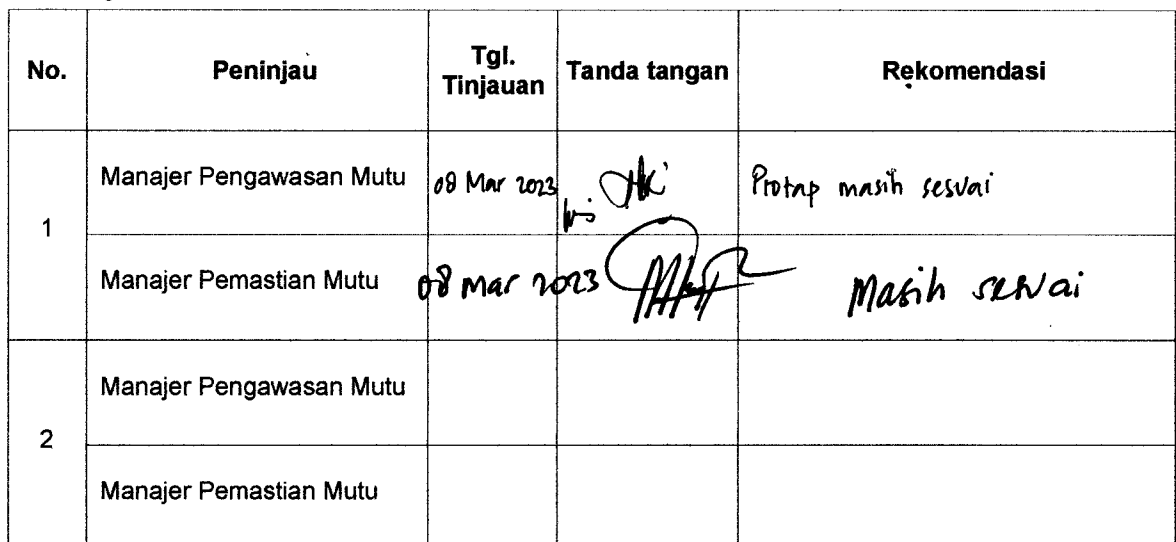 No. Peninjau Tgl. Tinjauan Tanda tangan Rekomendasi
1
Manajer Pengawasan Mutu 08 Mar 2023 Protap masih sesuai
Manajer Pemastian Mutu 08 Mar 2023 Masih sesuai
2
Manajer Pengawasan Mutu
Manajer Pemastian Mutu